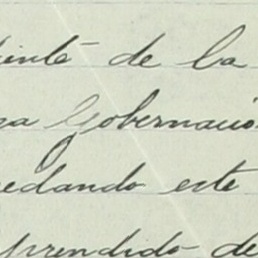 iente de la
sa Gobernació
uedando este
prendido de